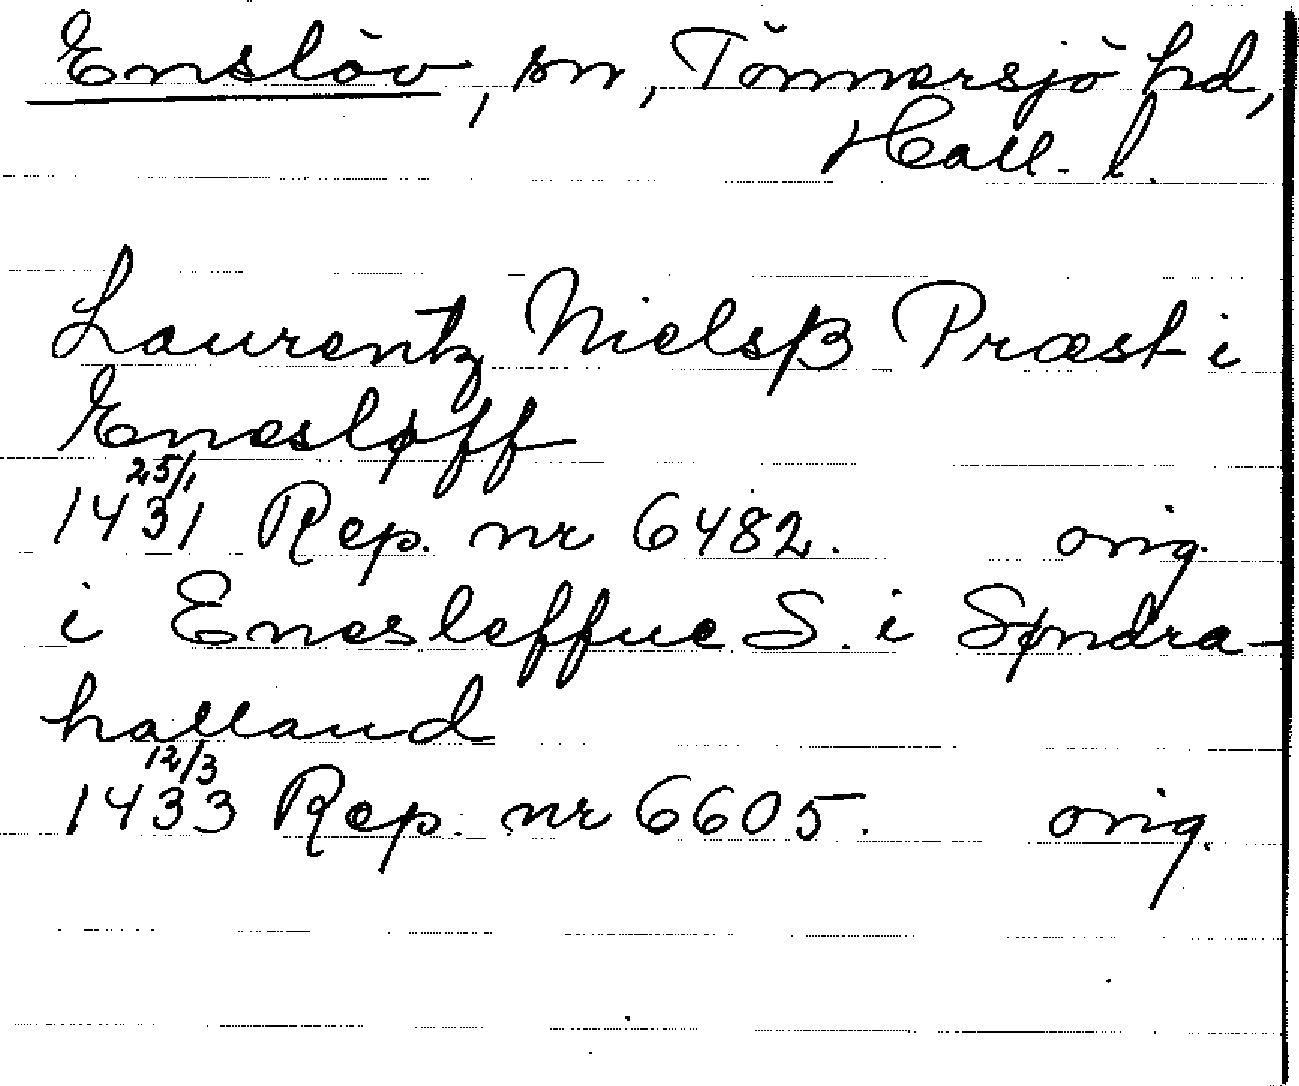 Enslöv, sn, Tönnersjö hd,
Hall. l.
Laurentz Nielsß Præst i
Enesløff
25/1
1431 Rep. nr 6482. orig.
i Enesleffue S. i Søndra-
halland
12/3
1433 Rep. nr 6605. orig.